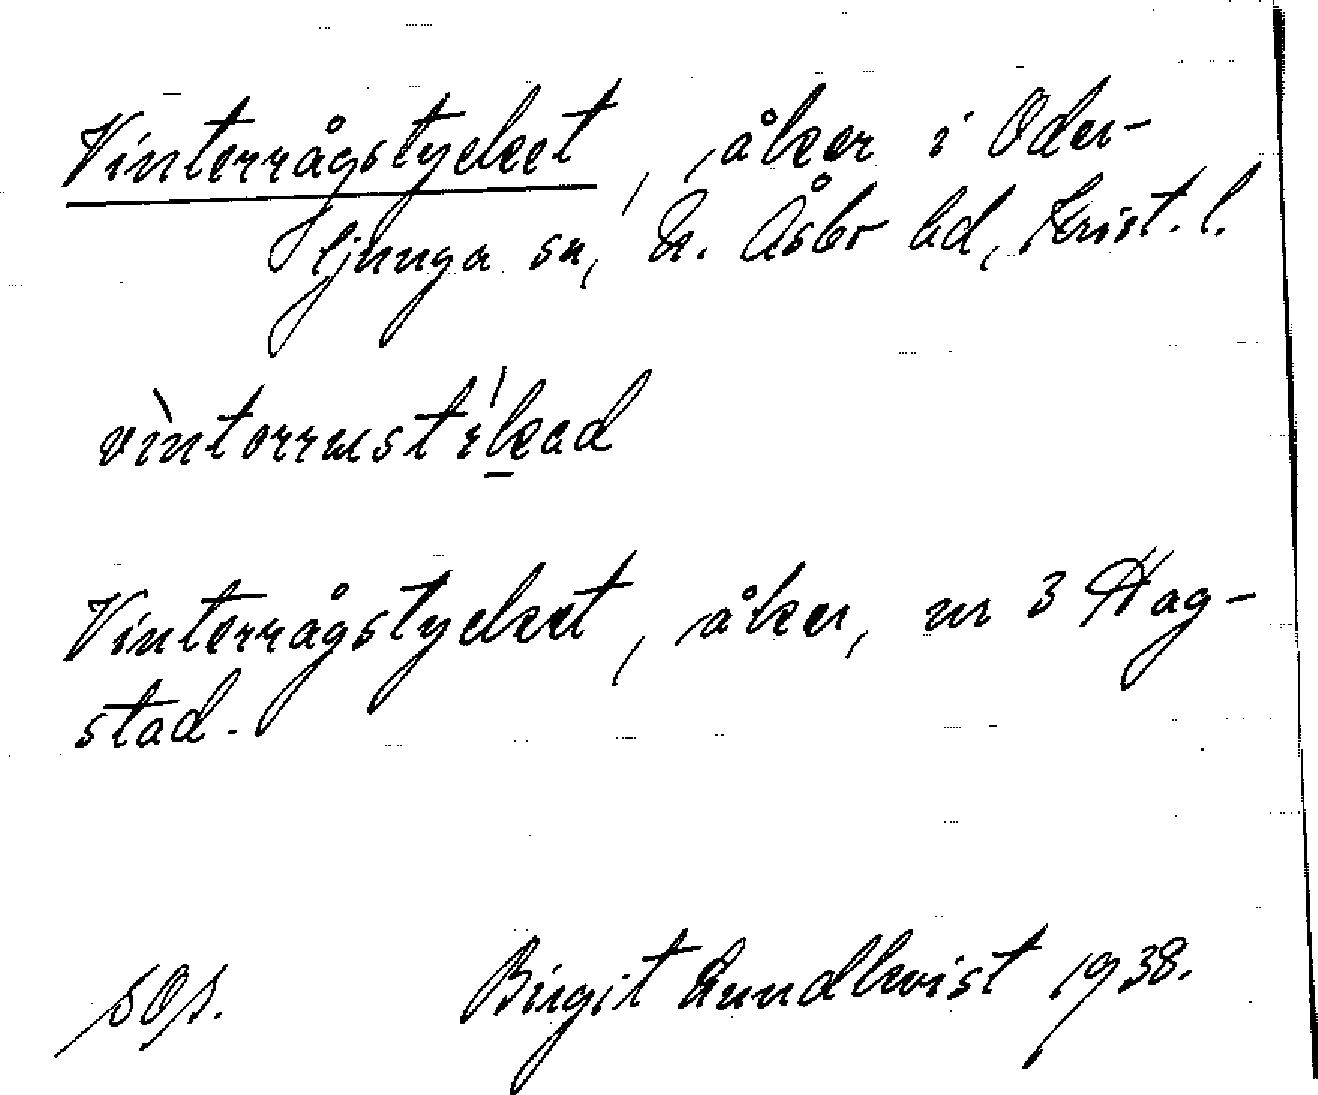 Vinterrågstycket, åker i Oder-
ljunga sn, N. Åsbo hd, Krist. l.
vìntorrust íkad
Vinterrågstycket, åker, nr 3 Hag-
stad.
Birgit Lundkvist 1938.